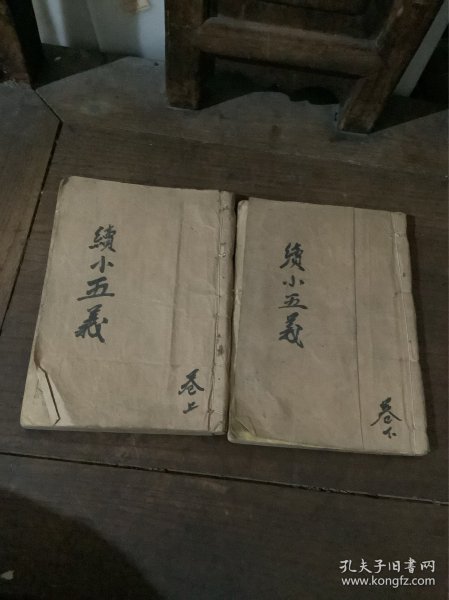 續小五義
卷上
續小五義
卷下
孔夫子旧书网
www.kongfz.com